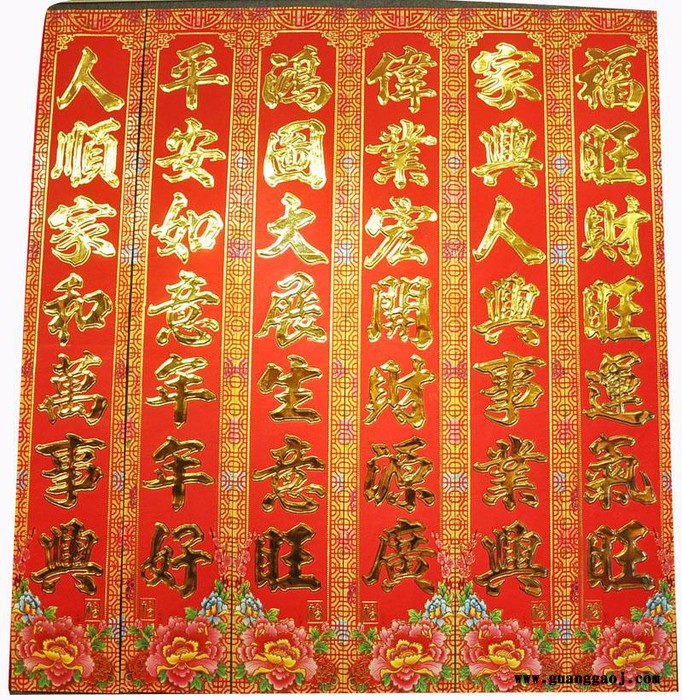 福旺財旺運氣旺
家興人興事業興
偉業宏開財源廣
鴻圖大展生意旺
平安如意年年好
人順家和萬事興
www.guanggaoj.com